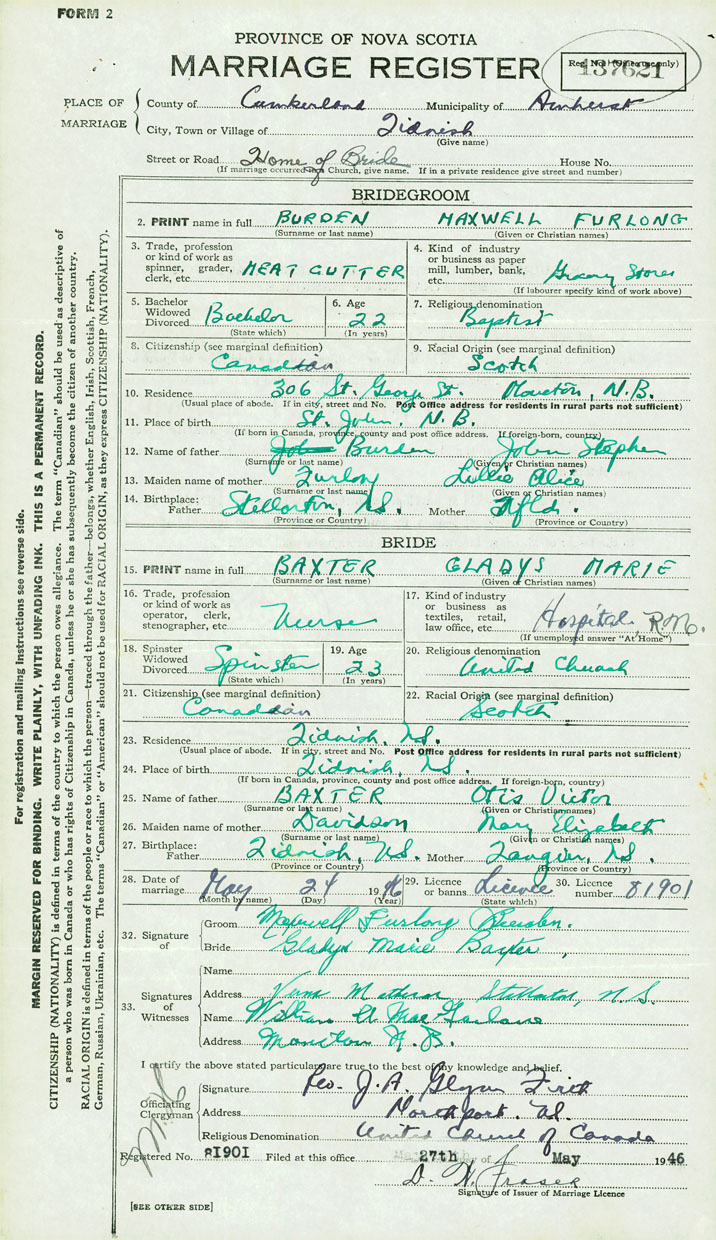 FORM 2
PROVINCE OF NOVA SCOTIA
MARRIAGE REGISTER
Reg. No. (Office use only)
137621
PLACE OF MARRIAGE
County of Cumberland Municipality of Amherst
City, Town or Village of Tidnish
(Give name)
Street or Road Home of Bride House No.
(If marriage occurred in a Church, give name. If in a private residence give street and number)
BRIDEGROOM
2. PRINT name in full BURDEN MAXWELL FURLONG
(Surname or last name) (Given or Christian names)
3. Trade, profession or kind of work as spinner, grader, clerk, etc. MEAT CUTTER
4. Kind of industry or business as paper mill, lumber, bank, etc. Grocery Stores
(If labourer specify kind of work above)
5. Bachelor Widowed Divorced Bachelor
(State which)
6. Age 22
(In years)
7. Religious denomination
Baptist
8. Citizenship (see marginal definition)
Canadian
9. Racial Origin (see marginal definition)
Scotch
10. Residence 306 St. George St. Moncton, N.B.
(Usual place of abode. If in city, street and No. Post Office address for residents in rural parts not sufficient)
11. Place of birth St. John, N.B.
(If born in Canada, province, county and post office address. If foreign-born, country)
12. Name of father John Burden John Stephen
(Surname or last name) (Given or Christian names)
13. Maiden name of mother Furlong Lillie Alice
(Surname or last name) (Given or Christian names)
14. Birthplace: Father Stellarton, N.S. Mother Nfld.
(Province or Country) (Province or Country)
BRIDE
15. PRINT name in full BAXTER GLADYS MARIE
(Surname or last name) (Given or Christian names)
16. Trade, profession or kind of work as operator, clerk, stenographer, etc. Nurse
17. Kind of industry or business as textiles, retail, law office, etc. Hospital, R.N.
(If unemployed answer "At Home")
18. Spinster Widowed Divorced Spinster
(State which)
19. Age 23
(In years)
20. Religious denomination
United Church
21. Citizenship (see marginal definition)
Canadian
22. Racial Origin (see marginal definition)
Scotch
23. Residence Tidnish, N.S.
(Usual place of abode. If in city, street and No. Post Office address for residents in rural parts not sufficient)
24. Place of birth Tidnish, N.S.
(If born in Canada, province, county and post office address. If foreign-born, country)
25. Name of father BAXTER Otis Victor
(Surname or last name) (Given or Christian names)
26. Maiden name of mother Davidson Mary Elizabeth
(Surname or last name) (Given or Christian names)
27. Birthplace: Father Tidnish, N.S. Mother Tangier, N.S.
(Province or Country) (Province or Country)
28. Date of marriage May 24 1946
(Month by name) (Day) (Year)
29. Licence or banns Licence
(State which)
30. Licence number 81901
32. Signature of
Groom Maxwell Furlong Burden.
Bride Gladys Marie Baxter,
33. Signatures of Witnesses
Name
Address Stellarton, N.S.
Name William A MacFarlane
Address Moncton N.B.
I certify the above stated particulars are true to the best of my knowledge and belief.
Officiating Clergyman
Signature Rev. J. A. Glynn Firth
Address Northport. N.S.
Religious Denomination United Church of Canada
Registered No. 81901 Filed at this office 27th day of May 1946
D. H. Fraser
Signature of Issuer of Marriage Licence
[SEE OTHER SIDE]
For registration and mailing instructions see reverse side.
MARGIN RESERVED FOR BINDING. WRITE PLAINLY, WITH UNFADING INK. THIS IS A PERMANENT RECORD.
CITIZENSHIP (NATIONALITY) is defined in terms of the country to which the person owes allegiance. The term "Canadian" should be used as descriptive of
a person who was born in Canada or who has rights of Citizenship in Canada, unless he or she has subsequently become the citizen of another country.
RACIAL ORIGIN is defined in terms of the people or race to which the person—traced through the father—belongs, whether English, Irish, Scottish, French,
German, Russian, Ukrainian, etc. The terms "Canadian" or "American" should not be used for RACIAL ORIGIN, as they express CITIZENSHIP (NATIONALITY).